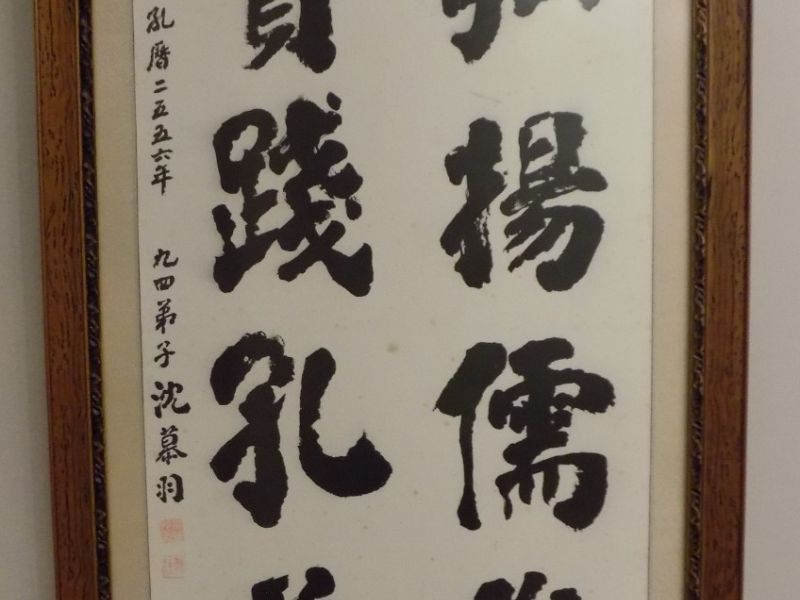 揚儒
踐孔
孔曆二五五六年 九四弟子沈慕羽